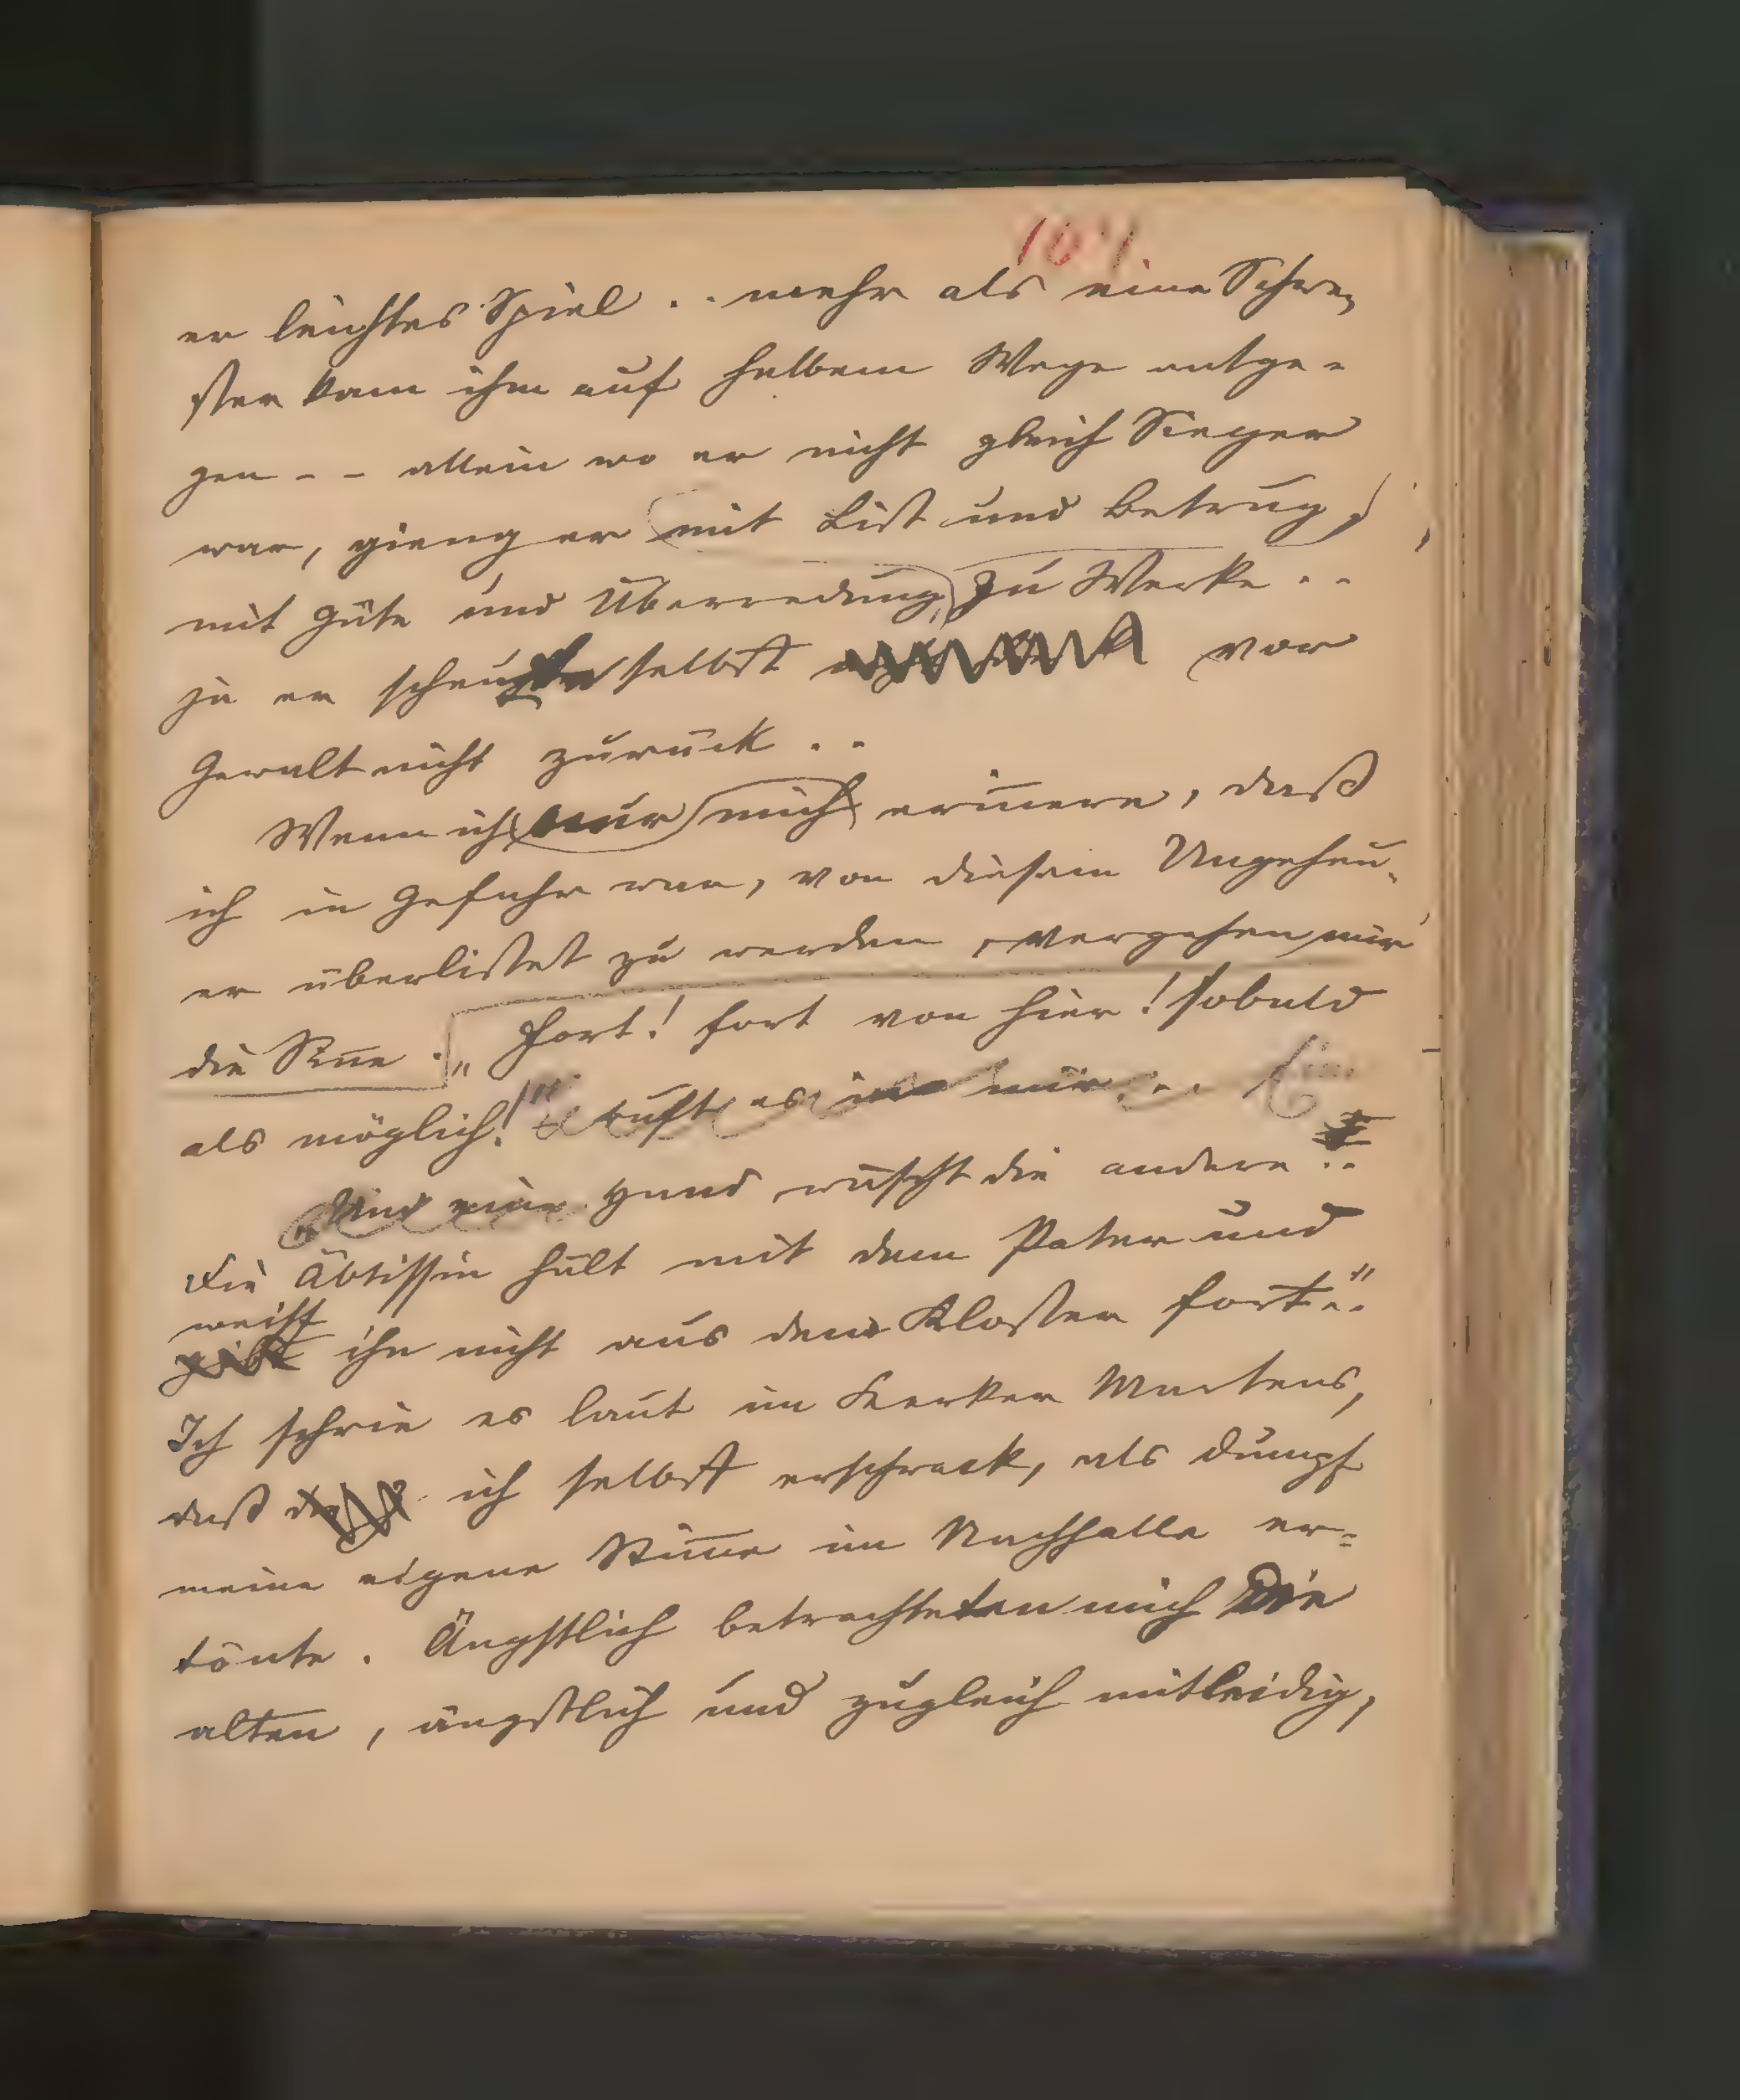 104.
er leichtes Spiel .. mehr als eine Schwe-
ster kam ihm auf halbem Wege entge-
gen - - allein wo er nicht gleich Sieger
war, gieng er mit List und Betrug,
mit Güte und Überredung, zu Werke ..
ja er scheute selbst vor
Gewalt nicht zurück ..
Wenn ich nur mich erin̄ere, daß
ich in Gefahr war, von diesem Ungeheu-
er überlistet zu werden, vergehen mir
die Sin̄e . „ Fort! fort von hier! sobald
als möglich!" ruft es in mir ... Eine
„Und eine Hand wascht die andere ..
Die Äbtissin hält mit dem Pater und
weist
gibt ihn nicht aus dem Kloster fort .."
Ich schrie es laut im Kerker Martens,
daß ich selbst erschrack, als dumpf
meine eigene Stim̄e im Nachhalle er-
tönte. Ängstlich betrachteten mich die
alten, ängstlich und zugleich mitleidig,